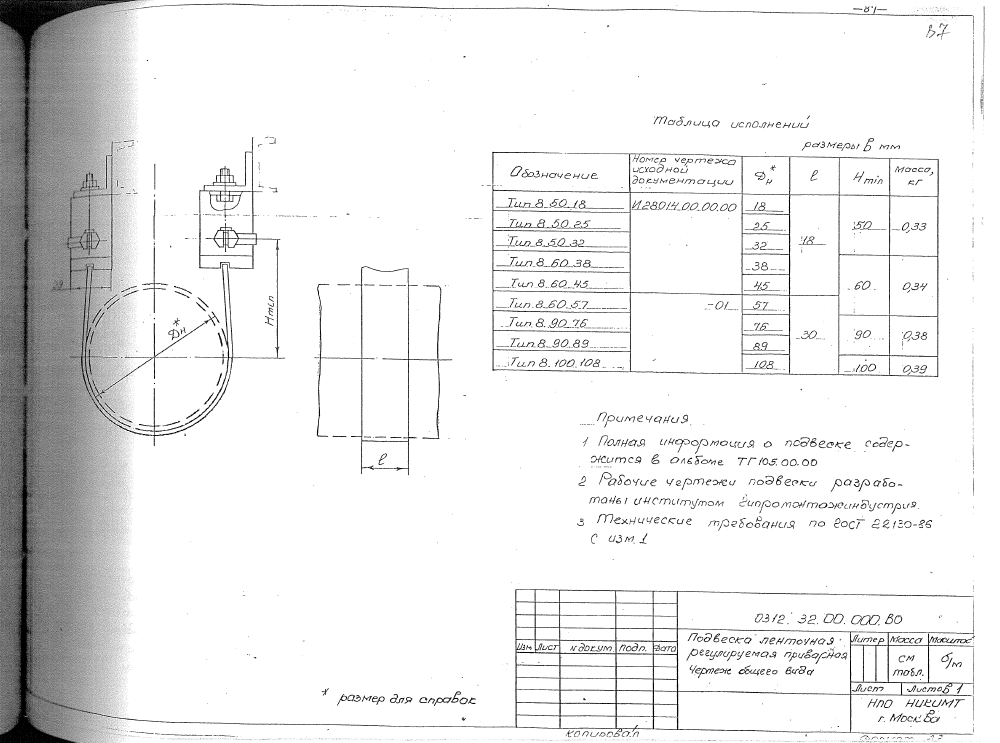 —87—
87
Таблица исполнений
размеры в мм
Обозначение
Номер чертежа исходной документации
Дн*
ℓ
Hmin
Масса, кг
Тип 8.50.18 И28014.00.00.00 18
Тип 8.50.25 25 50 0,33
Тип 8.50.32 32 18
Тип 8.60.38 38
Тип 8.60.45 45 60 0,34
Тип 8.60.57 -01 57
Тип 8.90.76 76 30 90 0,38
Тип 8.90.89 89
Тип 8.100.108 108 100 0,39
Hmin
Дн*
ℓ
Примечания
1 Полная информация о подвеске содер-
жится в альбоме ТГ105.00.00
2 Рабочие чертежи подвески разрабо-
таны институтом Гипромонтажиндустрия.
3 Технические требования по ГОСТ 22130-86
с изм. 1
* размер для справок
0312. 32.00.000.ВО
Изм Лист № докум. Подп. Дата
Подвеска ленточная
регулируемая приварная
Чертеж общего вида
Литер Масса Масштаб
см табл. б/м
Лист Листов 1
НПО НИКИМТ
г. Москва
Копировал